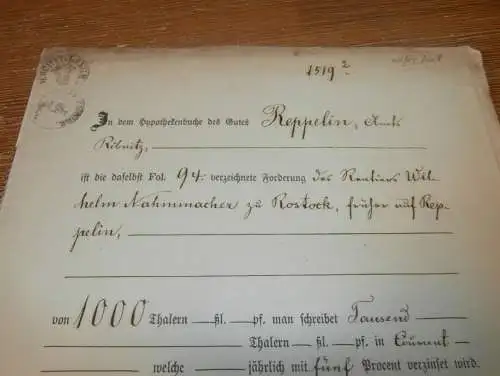 1519²
In dem Hypothekenbuche des Gutes Reppelin, Amts
Ribnitz,
ist die daselbst Fol. 94. verzeichnete Forderung des Rentiers Wil-
helm Nahmmacher zu Rostock, früher auf Rep-
pelin,
von 1000 Thalern — ßl. — pf. man schreibet Tausend
Thalern — ßl. — pf. in Courant
welche — jährlich mit fünf Procent verzinset wird.